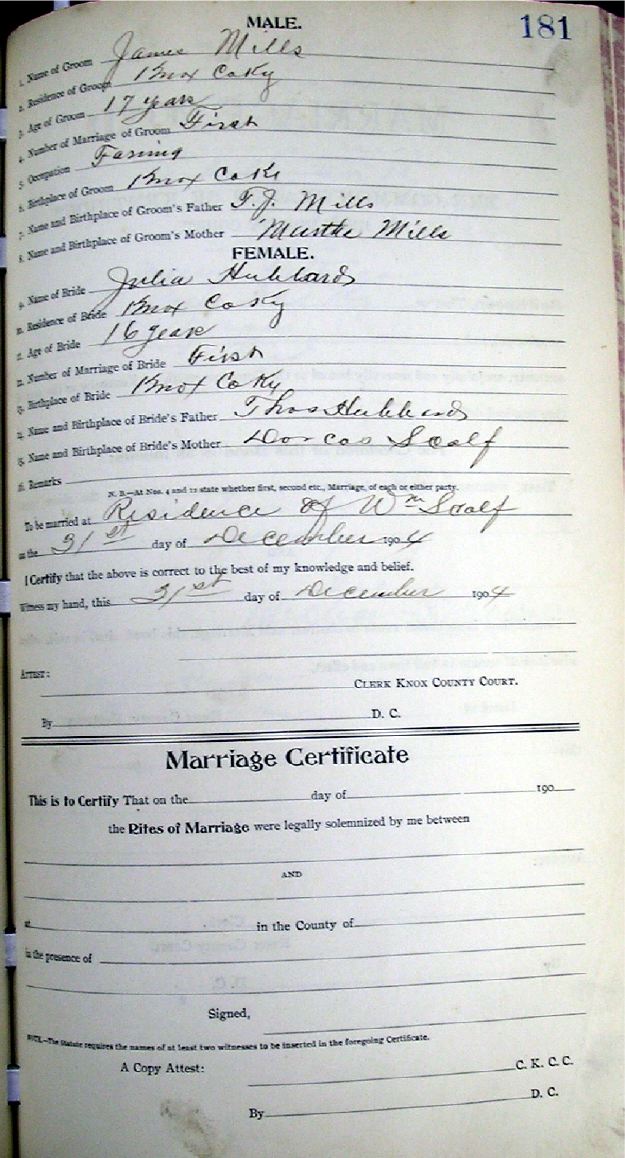 MALE. 181
1. Name of Groom James Mills
2. Residence of Groom Knox Co Ky
3. Age of Groom 17 years
4. Number of Marriage of Groom First
5. Occupation Farming
6. Birthplace of Groom Knox Co Ky
7. Name and Birthplace of Groom's Father T. J. Mills
8. Name and Birthplace of Groom's Mother Martha Mills
FEMALE.
9. Name of Bride Julia Hubbard
10. Residence of Bride Knox Co Ky
11. Age of Bride 16 years
12. Number of Marriage of Bride First
13. Birthplace of Bride Knox Co Ky
14. Name and Birthplace of Bride's Father Thos Hubbard
15. Name and Birthplace of Bride's Mother Dorcas Scalf
16. Remarks
N. B.—At Nos. 4 and 12 state whether first, second etc., Marriage, of each or either party.
To be married at Residence of Wm Scalf
on the 31st day of December 1904
I Certify that the above is correct to the best of my knowledge and belief.
Witness my hand, this 31st day of December 1904
ATTEST:
CLERK KNOX COUNTY COURT.
By D. C.
Marriage Certificate
This is to Certify That on the day of 190
the Rites of Marriage were legally solemnized by me between
AND
at in the County of
in the presence of
Signed,
NOTE.—The Statute requires the names of at least two witnesses to be inserted in the foregoing Certificate.
A Copy Attest: C. K. C. C.
By D. C.